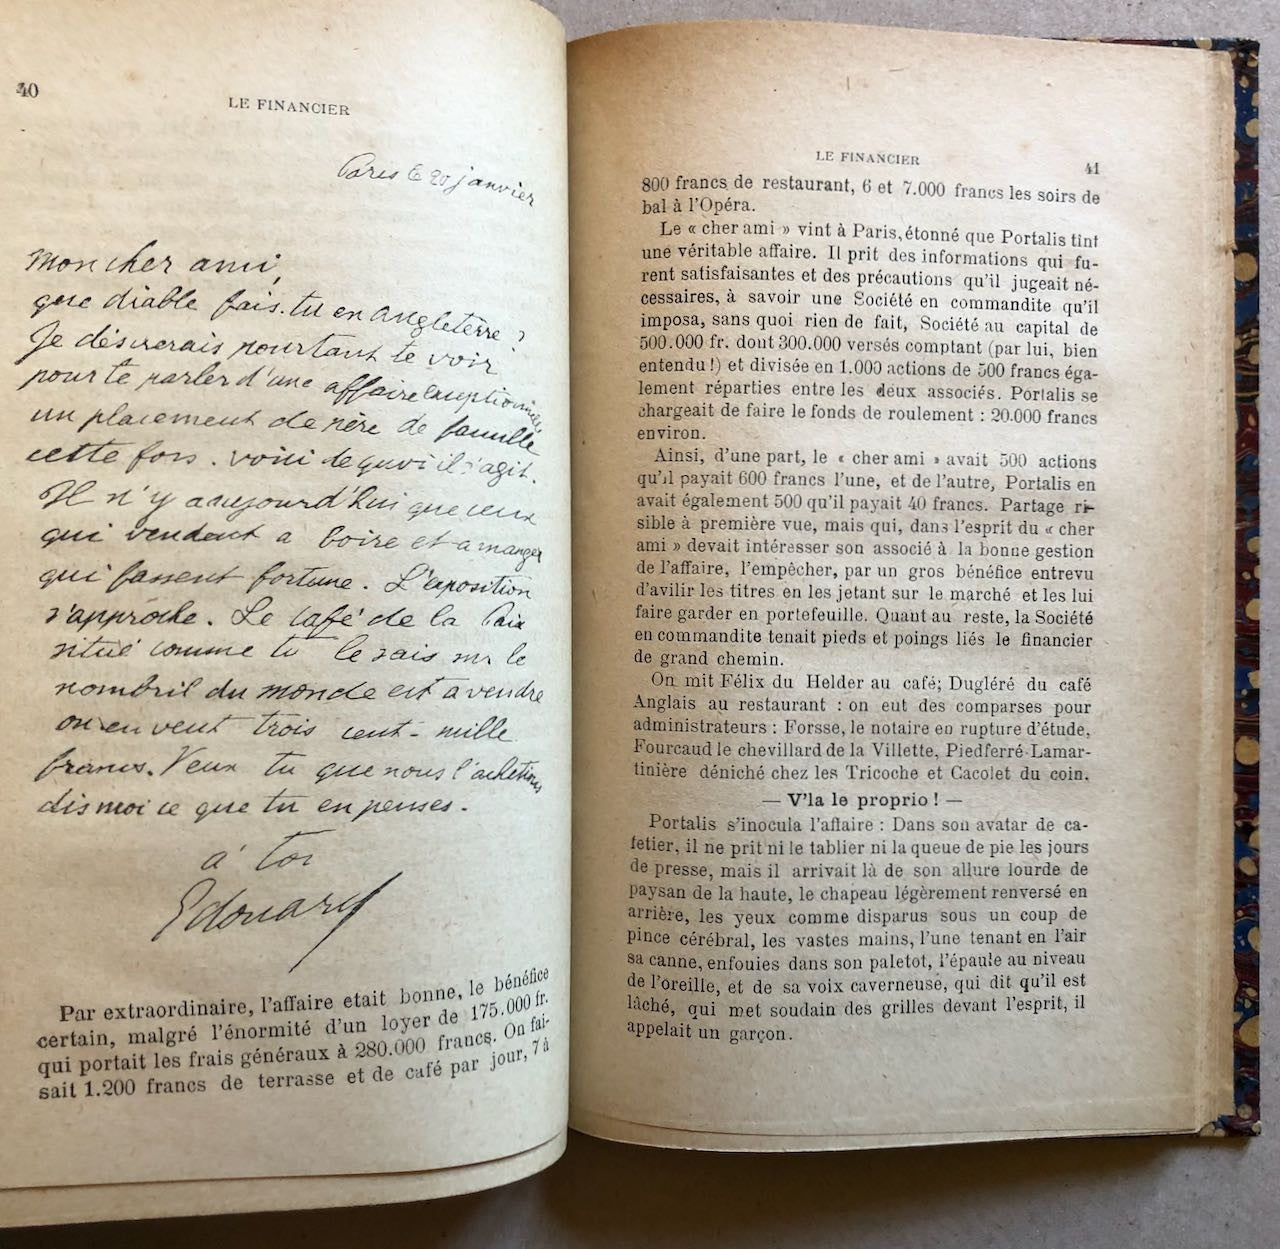 40
LE FINANCIER
Paris le 20 janvier
Mon cher ami,
que diable fais-tu en Angleterre ?
Je désirerais pourtant te voir
pour te parler d'une affaire exceptionnelle
un placement de père de famille
cette fois. voici de quoi il s'agit.
Il n'y a aujourd'hui que ceux
qui vendent a boire et a manger
qui fassent fortune. L'exposition
s'approche. Le café de la Paix
situé comme tu le sais sur le
nombril du monde est a vendre
on en veut trois cent-mille
francs. Veux tu que nous l'achetions
dis moi ce que tu en penses.
à toi
Edouard
Par extraordinaire, l'affaire etait bonne, le bénéfice
certain, malgré l'énormité d'un loyer de 175.000 fr.
qui portait les frais généraux à 280.000 francs. On fai-
sait 1.200 francs de terrasse et de café par jour, 7 à
LE FINANCIER
41
800 francs de restaurant, 6 et 7.000 francs les soirs de
bal à l'Opéra.
Le « cher ami » vint à Paris, étonné que Portalis tînt
une véritable affaire. Il prit des informations qui fu-
rent satisfaisantes et des précautions qu'il jugeait né-
cessaires, à savoir une Société en commandite qu'il
imposa, sans quoi rien de fait, Société au capital de
500.000 fr. dont 300.000 versés comptant (par lui, bien
entendu !) et divisée en 1.000 actions de 500 francs éga-
lement réparties entre les deux associés. Portalis se
chargeait de faire le fonds de roulement : 20.000 francs
environ.
Ainsi, d'une part, le « cher ami » avait 500 actions
qu'il payait 600 francs l'une, et de l'autre, Portalis en
avait également 500 qu'il payait 40 francs. Partage ri-
sible à première vue, mais qui, dans l'esprit du « cher
ami » devait intéresser son associé à la bonne gestion
de l'affaire, l'empêcher, par un gros bénéfice entrevu
d'avilir les titres en les jetant sur le marché et les lui
faire garder en portefeuille. Quant au reste, la Société
en commandite tenait pieds et poings liés le financier
de grand chemin.
On mit Félix du Helder au café; Dugléré du café
Anglais au restaurant : on eut des comparses pour
administrateurs : Forsse, le notaire en rupture d'étude,
Fourcaud le chevillard de la Villette, Piedferré-Lamar-
tinière déniché chez les Tricoche et Cacolet du coin.
— V'la le proprio ! —
Portalis s'inocula l'affaire : Dans son avatar de ca-
fetier, il ne prit ni le tablier ni la queue de pie les jours
de presse, mais il arrivait là de son allure lourde de
paysan de la haute, le chapeau légèrement renversé en
arrière, les yeux comme disparus sous un coup de
pince cérébral, les vastes mains, l'une tenant en l'air
sa canne, enfouies dans son paletot, l'épaule au niveau
de l'oreille, et de sa voix caverneuse, qui dit qu'il est
lâché, qui met soudain des grilles devant l'esprit, il
appelait un garçon.